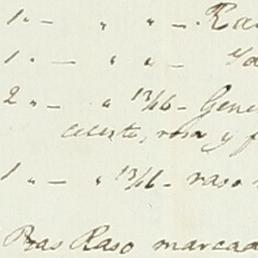 1 „ — „ „ — Ra
1 „ — „ „ —
2 „ — „ 13/16 — Gene
celeste, rosa y
1 „ — „ 13/16 — raso
Raso marcad